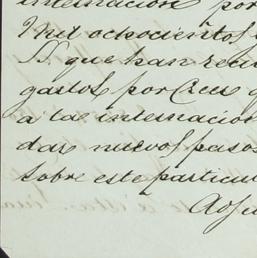 internacion por
Mil ochocientos
SS. que han reci
gastos, por Creer q
a la internacion
dar nuevos pasos
sobre este particul
Adju